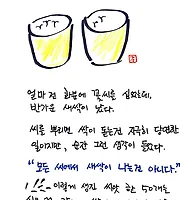 얼마 전 화분에 꽃씨를 심었는데,
반가운 새싹이 났다.
씨를 뿌리면 싹이 돋는건 지극히 당연한
일이지만, 순간 그런 생각이 들었다.
"모든 씨에서 새싹이 나는건 아니다."
이렇게 생긴 씨앗 한